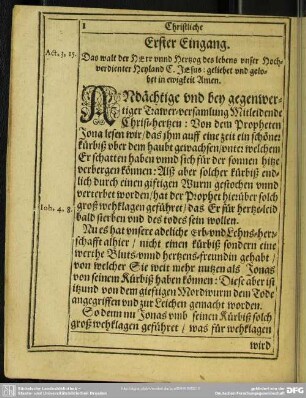 1
Christliche
Erster Eingang.
Act. 3, 15.
Das walt der Hærr vnnd Hertzog des lebens vnser Hoch-
verdienter Heyland C. Jæsus: geliebet vnd gelo-
bet in ewigkeit Amen.
ANdächtige vnd bey gegenwer-
tiger Trawer-versamlung Mitleidende
Christ-hertzen: Von dem Propheten
Jona lesen wir / das ihm auff eine zeit ein schöner
kürbiß vber dem haubt gewachsen / vnter welchem
Er schatten haben vnnd sich für der sonnen hitze
verbergen können: Alß aber solcher kürbiß end-
lich durch einen gifftigen Wurm gestochen vnnd
verterbet worden / hat der Prophet hierüber solch
Joh. 4. 8.
groß wehklagen geführet / das Er für hertzleid
bald sterben vnd des todes sein wollen.
Nu es hat vnsere adeliche Erb- vnd Lehns-her-
schafft alhier / nicht einen kürbiß sondern eine
werthe Bluts- vnnd hertzens-freundin gehabt /
von welcher Sie weit mehr nutzen als Jonas
von seinem Kürbiß haben können: Diese aber ist
itzund von dem giefftigen Mordwurm dem Tode
angegriffen vnd zur Leichen gemacht worden.
So denn nu Jonas vmb seinen Kürbiß solch
groß wehklagen geführet / was für wehklagen
wird